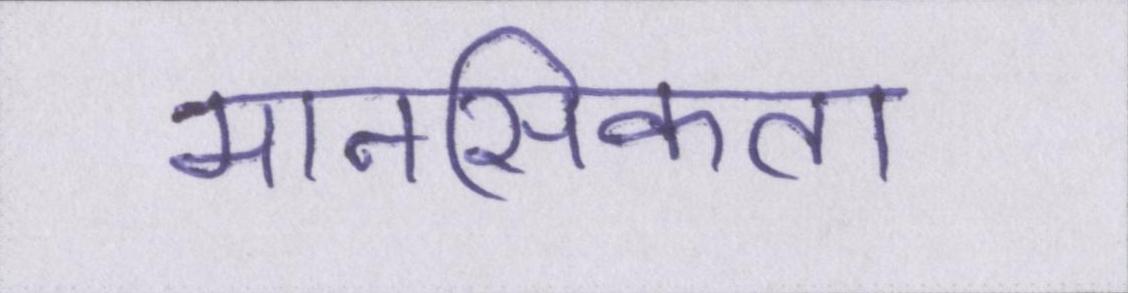 मानसिकता